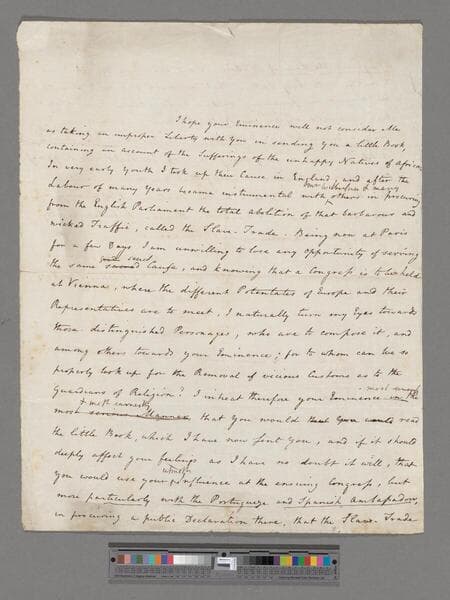 I hope your Eminence will not consider Me
as taking an improper Liberty with you in sending you a little Book,
containing an account of the Sufferings of the unhappy Natives of Africa.
In very early Youth I took up their Cause in England, and after the
Labour of many Years became instrumental with others in procuring
Mr Wilberforce & many
from the English Parliament the total abolition of that barbarous and
wicked Traffic, called the Slave-Trade. Being now at Paris
for a few Days I am unwilling to lose any opportunity of serving
the same sacred Cause, and knowing that a Congress is to be held
at Vienna, where the different Potentates of Europe and their
Representatives are to meet, I naturally turn my Eyes towards
those distinguished Personages, who are to compose it, and
among others towards your Eminence; for to whom can we so
properly look up for the Removal of vicious Customs as to the
Guardians of Religion? I intreat therefore your Eminence in the
most
& most earnestly
most serious Manner that you would read
the little Book, which I have now sent you, and if it should
deeply affect your feelings as I have no doubt it will, that
you would use your influence at the ensuing Congress, but
utmost
more particularly with the Portuguese and Spanish Ambassadors,
in procuring a public Declaration there, that the Slave-Trade